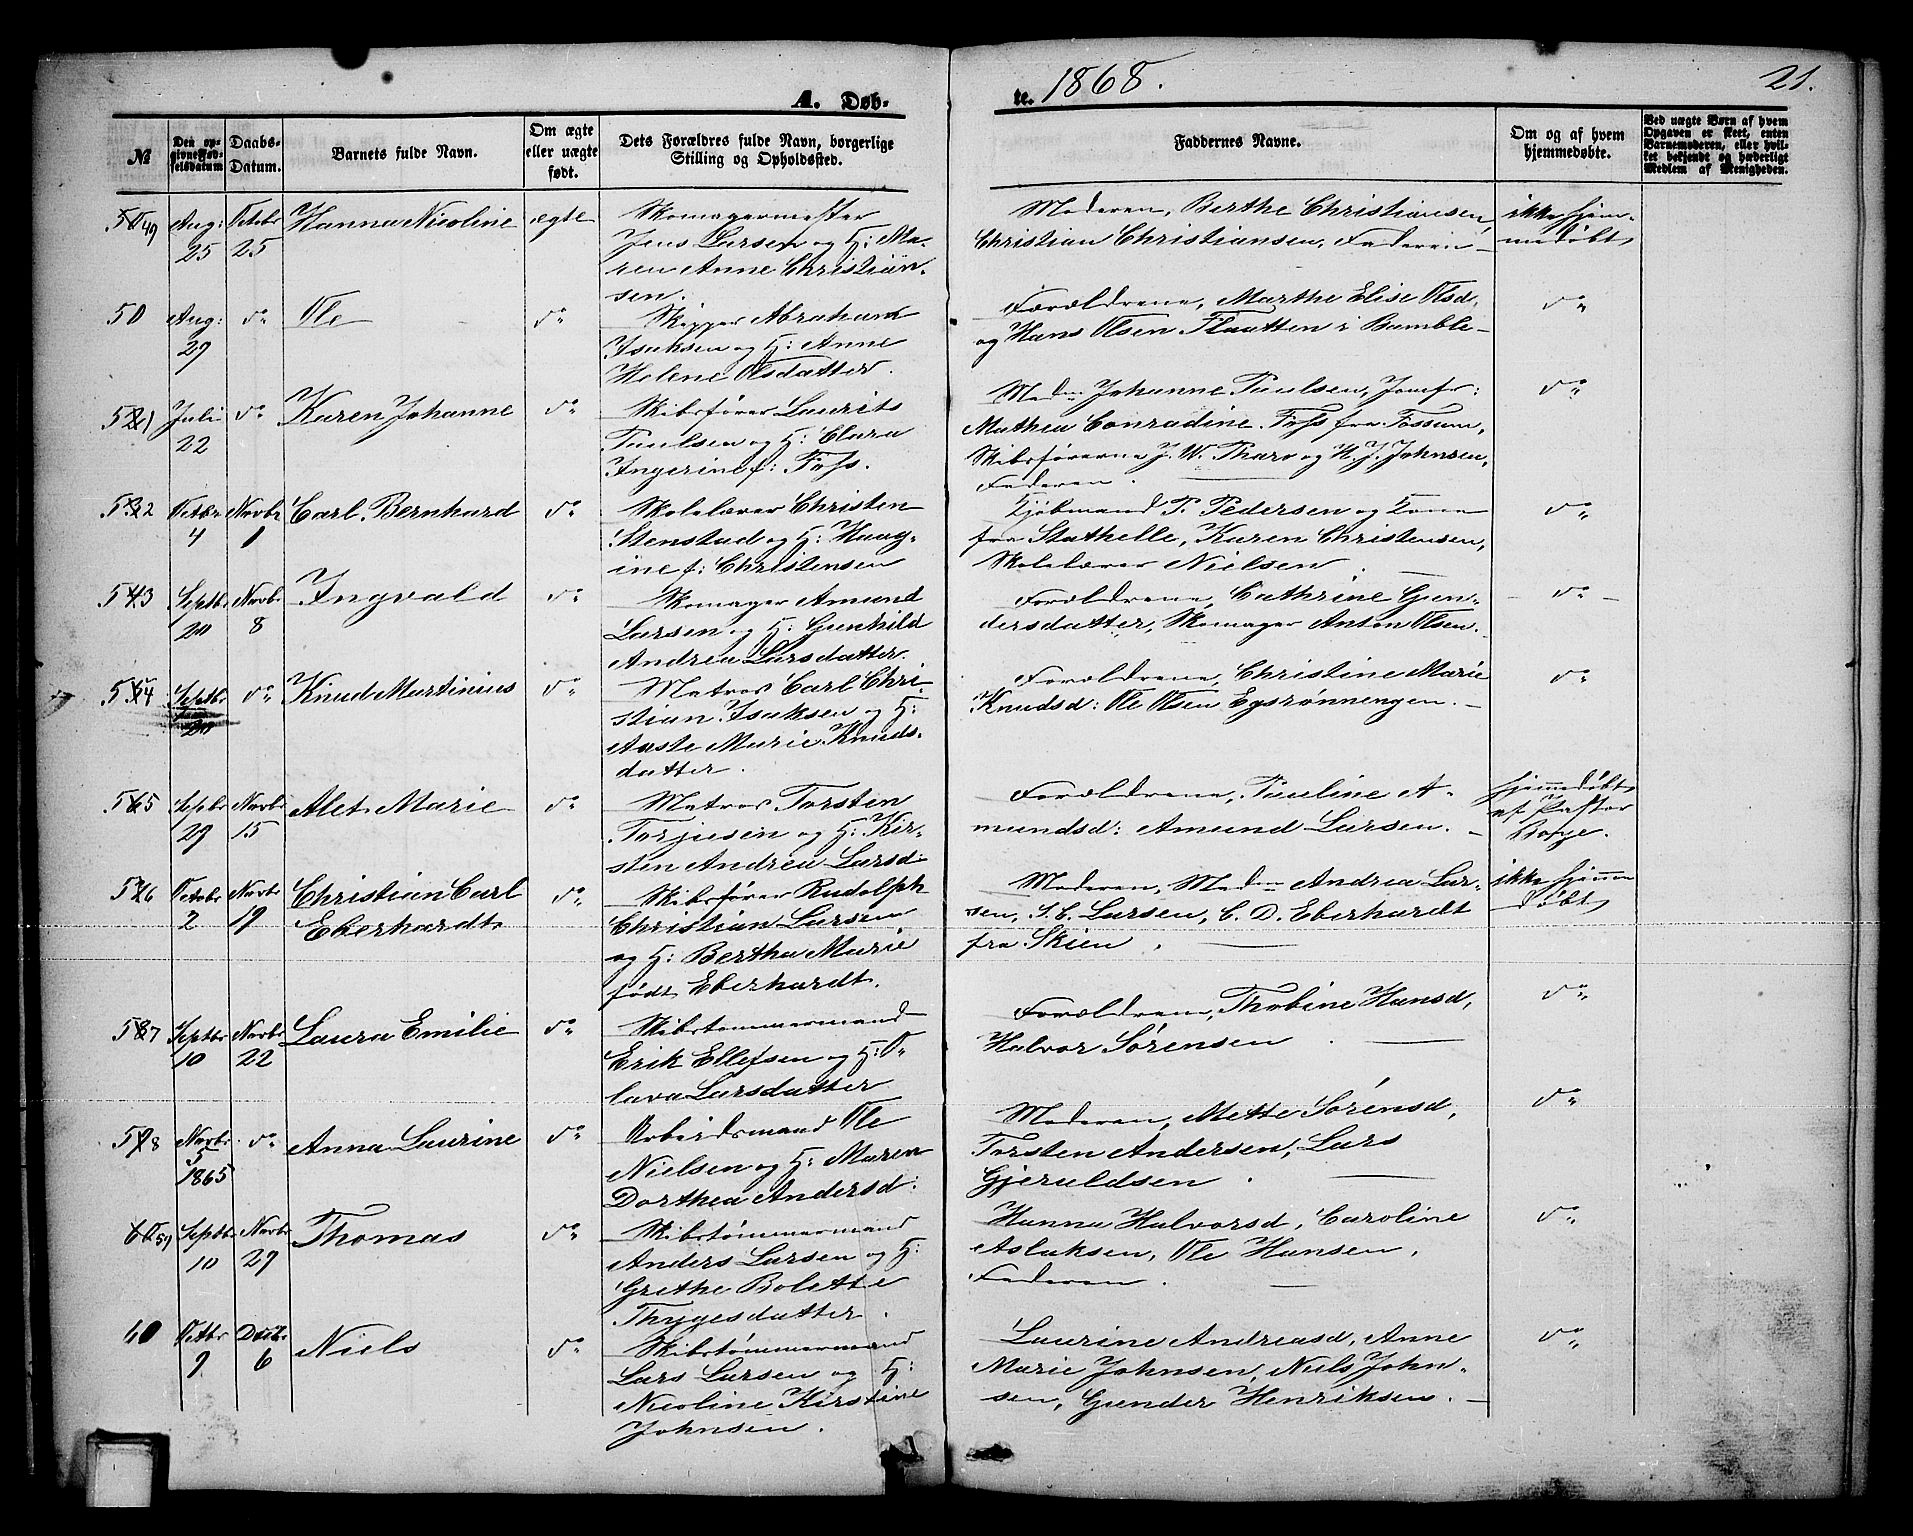 A. Døb- te. 1868. 21.
№ | Den opgivne Fødselsdatum | Daabs-Datum. | Barnets fulde Navn. | Om ægte eller uægte født. | Dets Forældres fulde Navn, borgerlige Stilling og Opholdssted. | Faddernes Navne. | Om og af hvem hjemmedøbte. | Ved uægte Børn af hvem Opgaven er skeet, enten Barnemoderen, eller hvilket bekjendt og hæderligt Medlem af Menigheden.
49 Aug: 25 Octobr 25 Hanna Nicoline ægte
Skomagermester
Jens Larsen og H: Ma-
ren Anne Christian-
sen.
Moderen, Berthe Christiansen,
Christian Christiansen, Faderen –
ikke hjem-
medøbt
50 Aug: 29 do Ole do
Skipper Abraham
Isaksen og H: Anne
Helene Olsdatter.
Forældrene, Marthe Elise Olsd,
og Hans Olsen Flaatten i Bamble –
do
51 Juli 22 do Karen Johanne do
Skibsfører Laurits
Paulsen og H: Clara
Ingerine f: Foss.
Madm Johanne Paulsen, Jomfr:
Mathea Conradine Foss fra Fossum,
Skibsførerne J. W. Tharo og H. J. Johnsen,
Faderen.
do
52 Octbr 4 Novbr 1 Carl Bernhard do
Skolelærer Christen
Stenstad og H: Haag-
ine f: Christensen
Kjøbmand P. Pedersen og Kone
fra Stathelle, Karen Christensen,
Skolelærer Nielsen.
do
53 Septbr 20 Novbr 8 Ingvald do
Skomager Amund
Larsen og H: Gunhild
Andrea Larsdatter.
Forældrene, Cathrine Gun-
dersdatter, Skomager Anton Olsen.
– do –
54 Septbr 20 do Knud Martinius do
Matros Carl Chri-
stian Isaksen og H:
Aaste Marie Knuds-
datter.
Forældrene, Christine Marie
Knudsd: Ole Olsen Egsrønnengen. –
do
55 Septbr 29 Novbr 15 Alet Marie do
Matros Torsten
Torjusen og H: Kir-
sten Andrea Larsd:
Forældrene, Pauline A-
mundsd: Amund Larsen. –
hjemmedøbt
af Pastor
56 Octobr 2 Novbr 19 Christian Carl
Eberhardt do
Skibsfører Rudolph
Christian Larsen
og H: Bertha Marie
født Eberhardt.
Moderen, Madm Andrea Lar-
sen, S. E. Larsen, C. D. Eberhardt
fra Skien.
ikke hjemme
døbt
57 Septbr 10 Novbr 22 Laura Emilie do
Skibstømmermand
Erik Ellefsen og H: O-
lava Larsdatter
Forældrene, Thobine Hansd,
Halvor Sørensen.
do
58 Novbr 5 1865 do Anna Laurine do
Arbeidsmand Ole
Nielsen og H: Maren
Dorthea Andersd:
Moderen, Mette Sørensd,
Torsten Andersen, Lars
Gjeruldsen.
do
59 Septbr 10 Novbr 29 Thomas do
Skibstømmermand
Anders Larsen og H:
Grethe Bolette
Thygesdatter.
Hanna Halvorsd, Caroline
Aslaksen, Ole Hansen,
Faderen.
do
60 Octbr 9 Decbr 6 Niels do
Skibstømmermand
Lars Larsen og H:
Nicoline Kirstine
Johnsen.
Laurine Andreasd, Anne
Marie Johnsen, Niels John-
sen, Gunder Henriksen. –
do